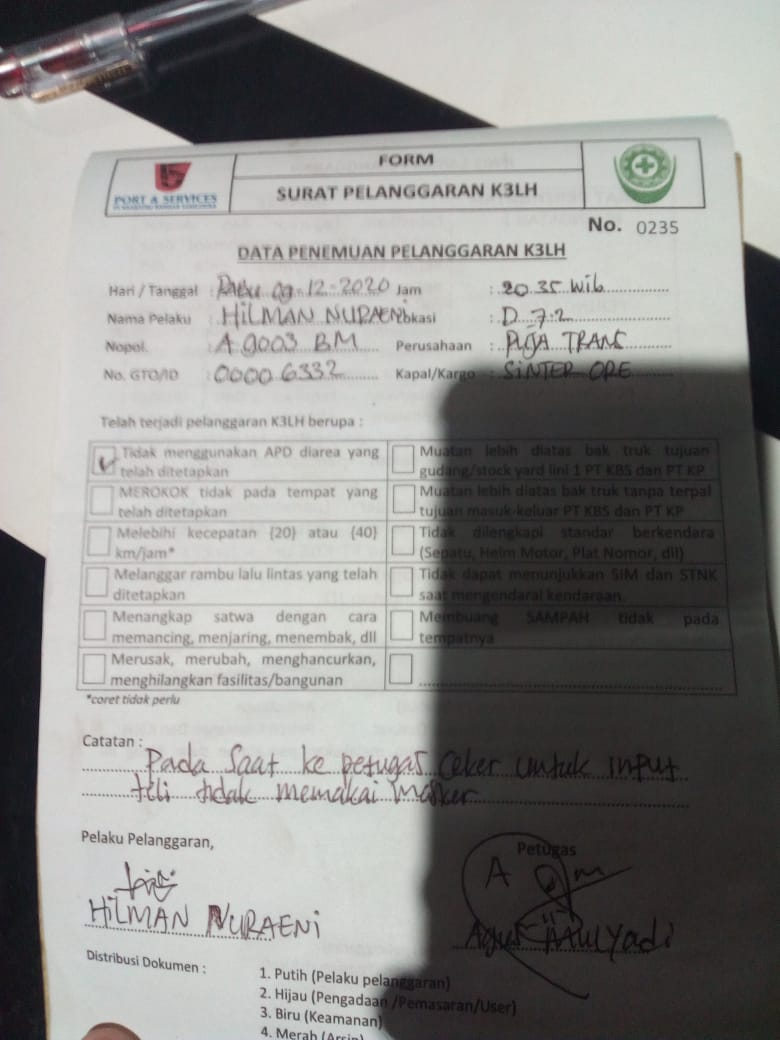 PORT & SERVICES
FORM
SURAT PELANGGARAN K3LH
No. 0235
DATA PENEMUAN PELANGGARAN K3LH
Hari / Tanggal : Rabu 09-12-2020 Jam : 20.35 Wib
Nama Pelaku : HILMAN NURAENI Lokasi : D 7.2
Nopol. : A 9003 BM Perusahaan : PUJA TRANS
No. GTO/ID : 0000 6332 Kapal/Kargo : SINTER ORE
Telah terjadi pelanggaran K3LH berupa :
Tidak menggunakan APD diarea yang telah ditetapkan
Muatan lebih diatas bak truk tujuan gudang/stock yard lini 1 PT KBS dan PT KP
MEROKOK tidak pada tempat yang telah ditetapkan
Muatan lebih diatas bak truk tanpa terpal tujuan masuk-keluar PT KBS dan PT KP
Melebihi kecepatan {20} atau {40} km/jam*
Tidak dilengkapi standar berkendara (Sepatu, Helm Motor, Plat Nomor, dll)
Melanggar rambu lalu lintas yang telah ditetapkan
Tidak dapat menunjukkan SIM dan STNK saat mengendarai kendaraan.
Menangkap satwa dengan cara memancing, menjaring, menembak, dll
Membuang SAMPAH tidak pada tempatnya
Merusak, merubah, menghancurkan, menghilangkan fasilitas/bangunan
*coret tidak perlu
Catatan :
Pada saat ke petugas ceker untuk input
tidak memakai masker
Pelaku Pelanggaran,
Petugas
HILMAN NURAENI
Agus Mulyadi
Distribusi Dokumen :
1. Putih (Pelaku pelanggaran)
2. Hijau (Pengadaan /Pemasaran/User)
3. Biru (Keamanan)
4. Merah (Arsip)